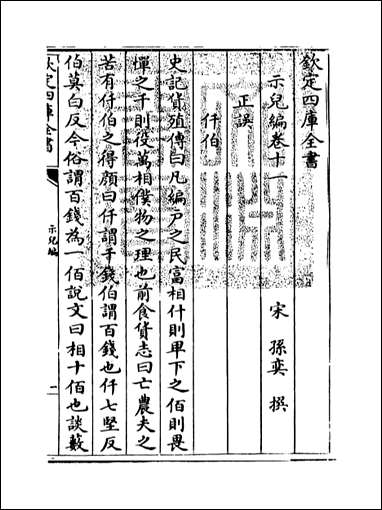 欽定四庫全書
示兒編卷十一
宋 孫奕 撰
正誤
仟伯
史記貨殖傳曰凡編戶之民富相什則卑下之佰則畏
憚之千則役萬相僕物之理也前食貨志曰亡農夫之
苦有仟伯之得顔曰仟謂千錢伯謂百錢也仟七堅反
伯莫白反今俗謂百錢為一佰說文曰相十佰也談藪
欽定四庫全書
示兒編
一